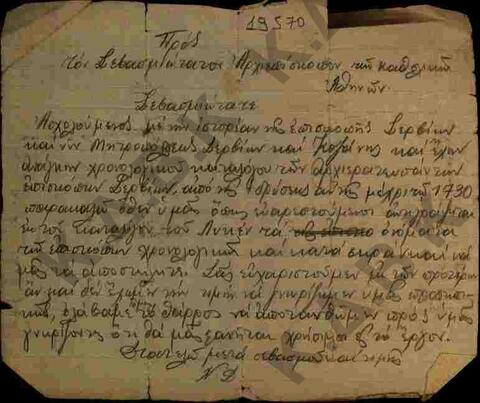 19570
Πρός
τόν Σεβασμιώτατον Ἀρχιεπίσκοπον τῶν καθολικῶν
Ἀθηνῶν
Σεβασμιώτατε
Ἀσχολούμενος μέ τήν ἱστορίαν τῆς ἐπισκοπῆς Σερβίων
καί νῦν Μητροπόλεως Σερβίων καί Κοζάνης καί ἔχων
ἀνάγκην χρονολογικοῦ καταλόγου τῶν ἀρχιερατευσάντων
ἐπισκόπων Σερβίων, ἀπό τῆς ἱδρύσεως αὐτῆς μέχρι τοῦ 1730
παρακαλῶ ὅθεν ὑμᾶς ὅπως εὐαρεστούμενοι
ἐκ τοῦ τοῦ τά ὀνόματα
τῶν ἐπισκόπων χρονολογικῶς καί κατά σειράν καί νά
μᾶς τά ἀποστείλητε. Σᾶς εὐχαριστοῦμεν ἐκ τῶν προτέρων
ἄν καί δέν ἔχωμεν τήν τιμήν νά γνωρίζωμεν ὑμᾶς προσωπι
κῶς, ἐλάβαμε τό θάρρος νά ἀποτανθῶμεν πρός ὑμᾶς
γνωρίζοντες ὅτι θά μᾶς φανῆτε χρήσιμοι εἰς τό ἔργον.
Διατελῶ μετά σεβασμοῦ καί τιμῆς
Ν Δ